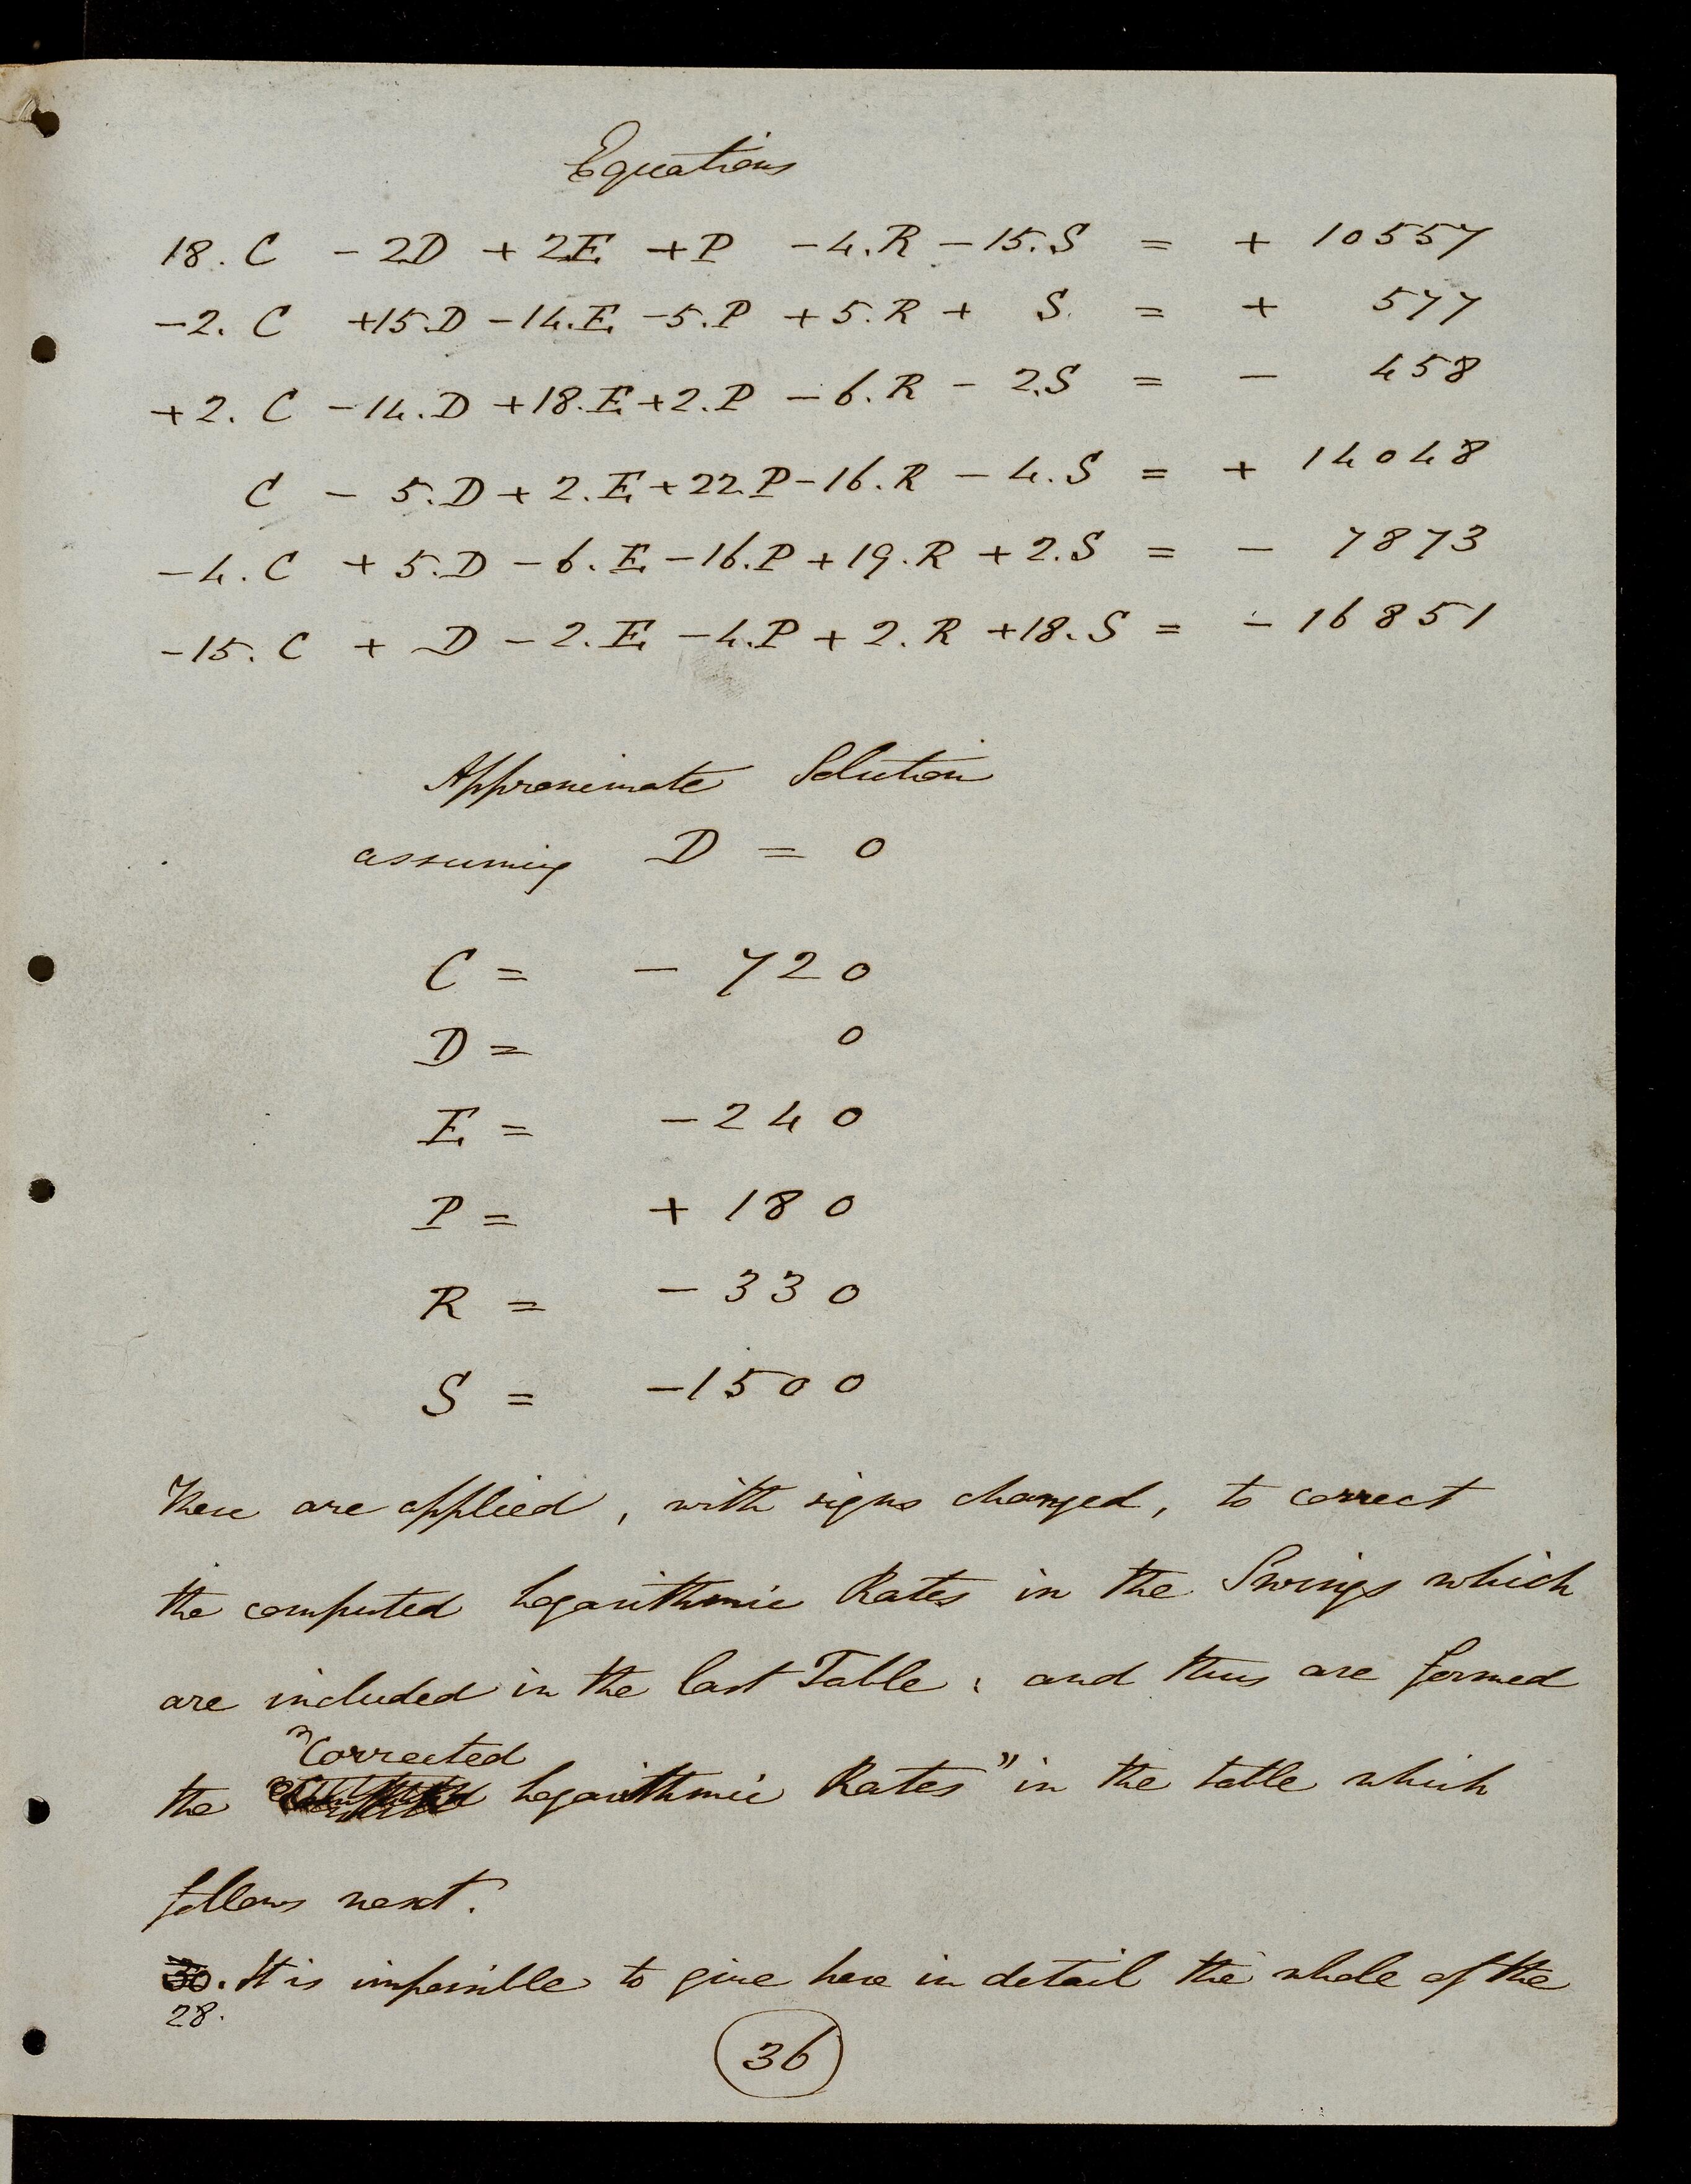 Equations
18. C - 2D + 2E + P - 4.R - 15.S = + 10557
-2. C +15.D - 14.E - 5.P + 5.R + S. = + 577
+2. C - 14.D + 18.E + 2.P - 6.R - 2.S = - 458
C - 5.D + 2.E + 22.P - 16.R - 4.S = + 14048
-4. C + 5.D - 6.E - 16.P + 19.R + 2.S = - 7873
-15. C + D - 2.E - 4.P + 2.R + 18.S = - 16851
Approximate Solution
assuming D = 0
C = - 720
D = 0
E = - 240
P = + 180
R = - 330
S = - 1500
These are applied, with signs changed, to correct
the computed logarithmic Rates in the Swings which
are included in the last Table; and thus are formed
"Corrected
the logarithmic Rates" in the table which
follows next.
30. It is impossible to give here in detail the whole of the
28.
36